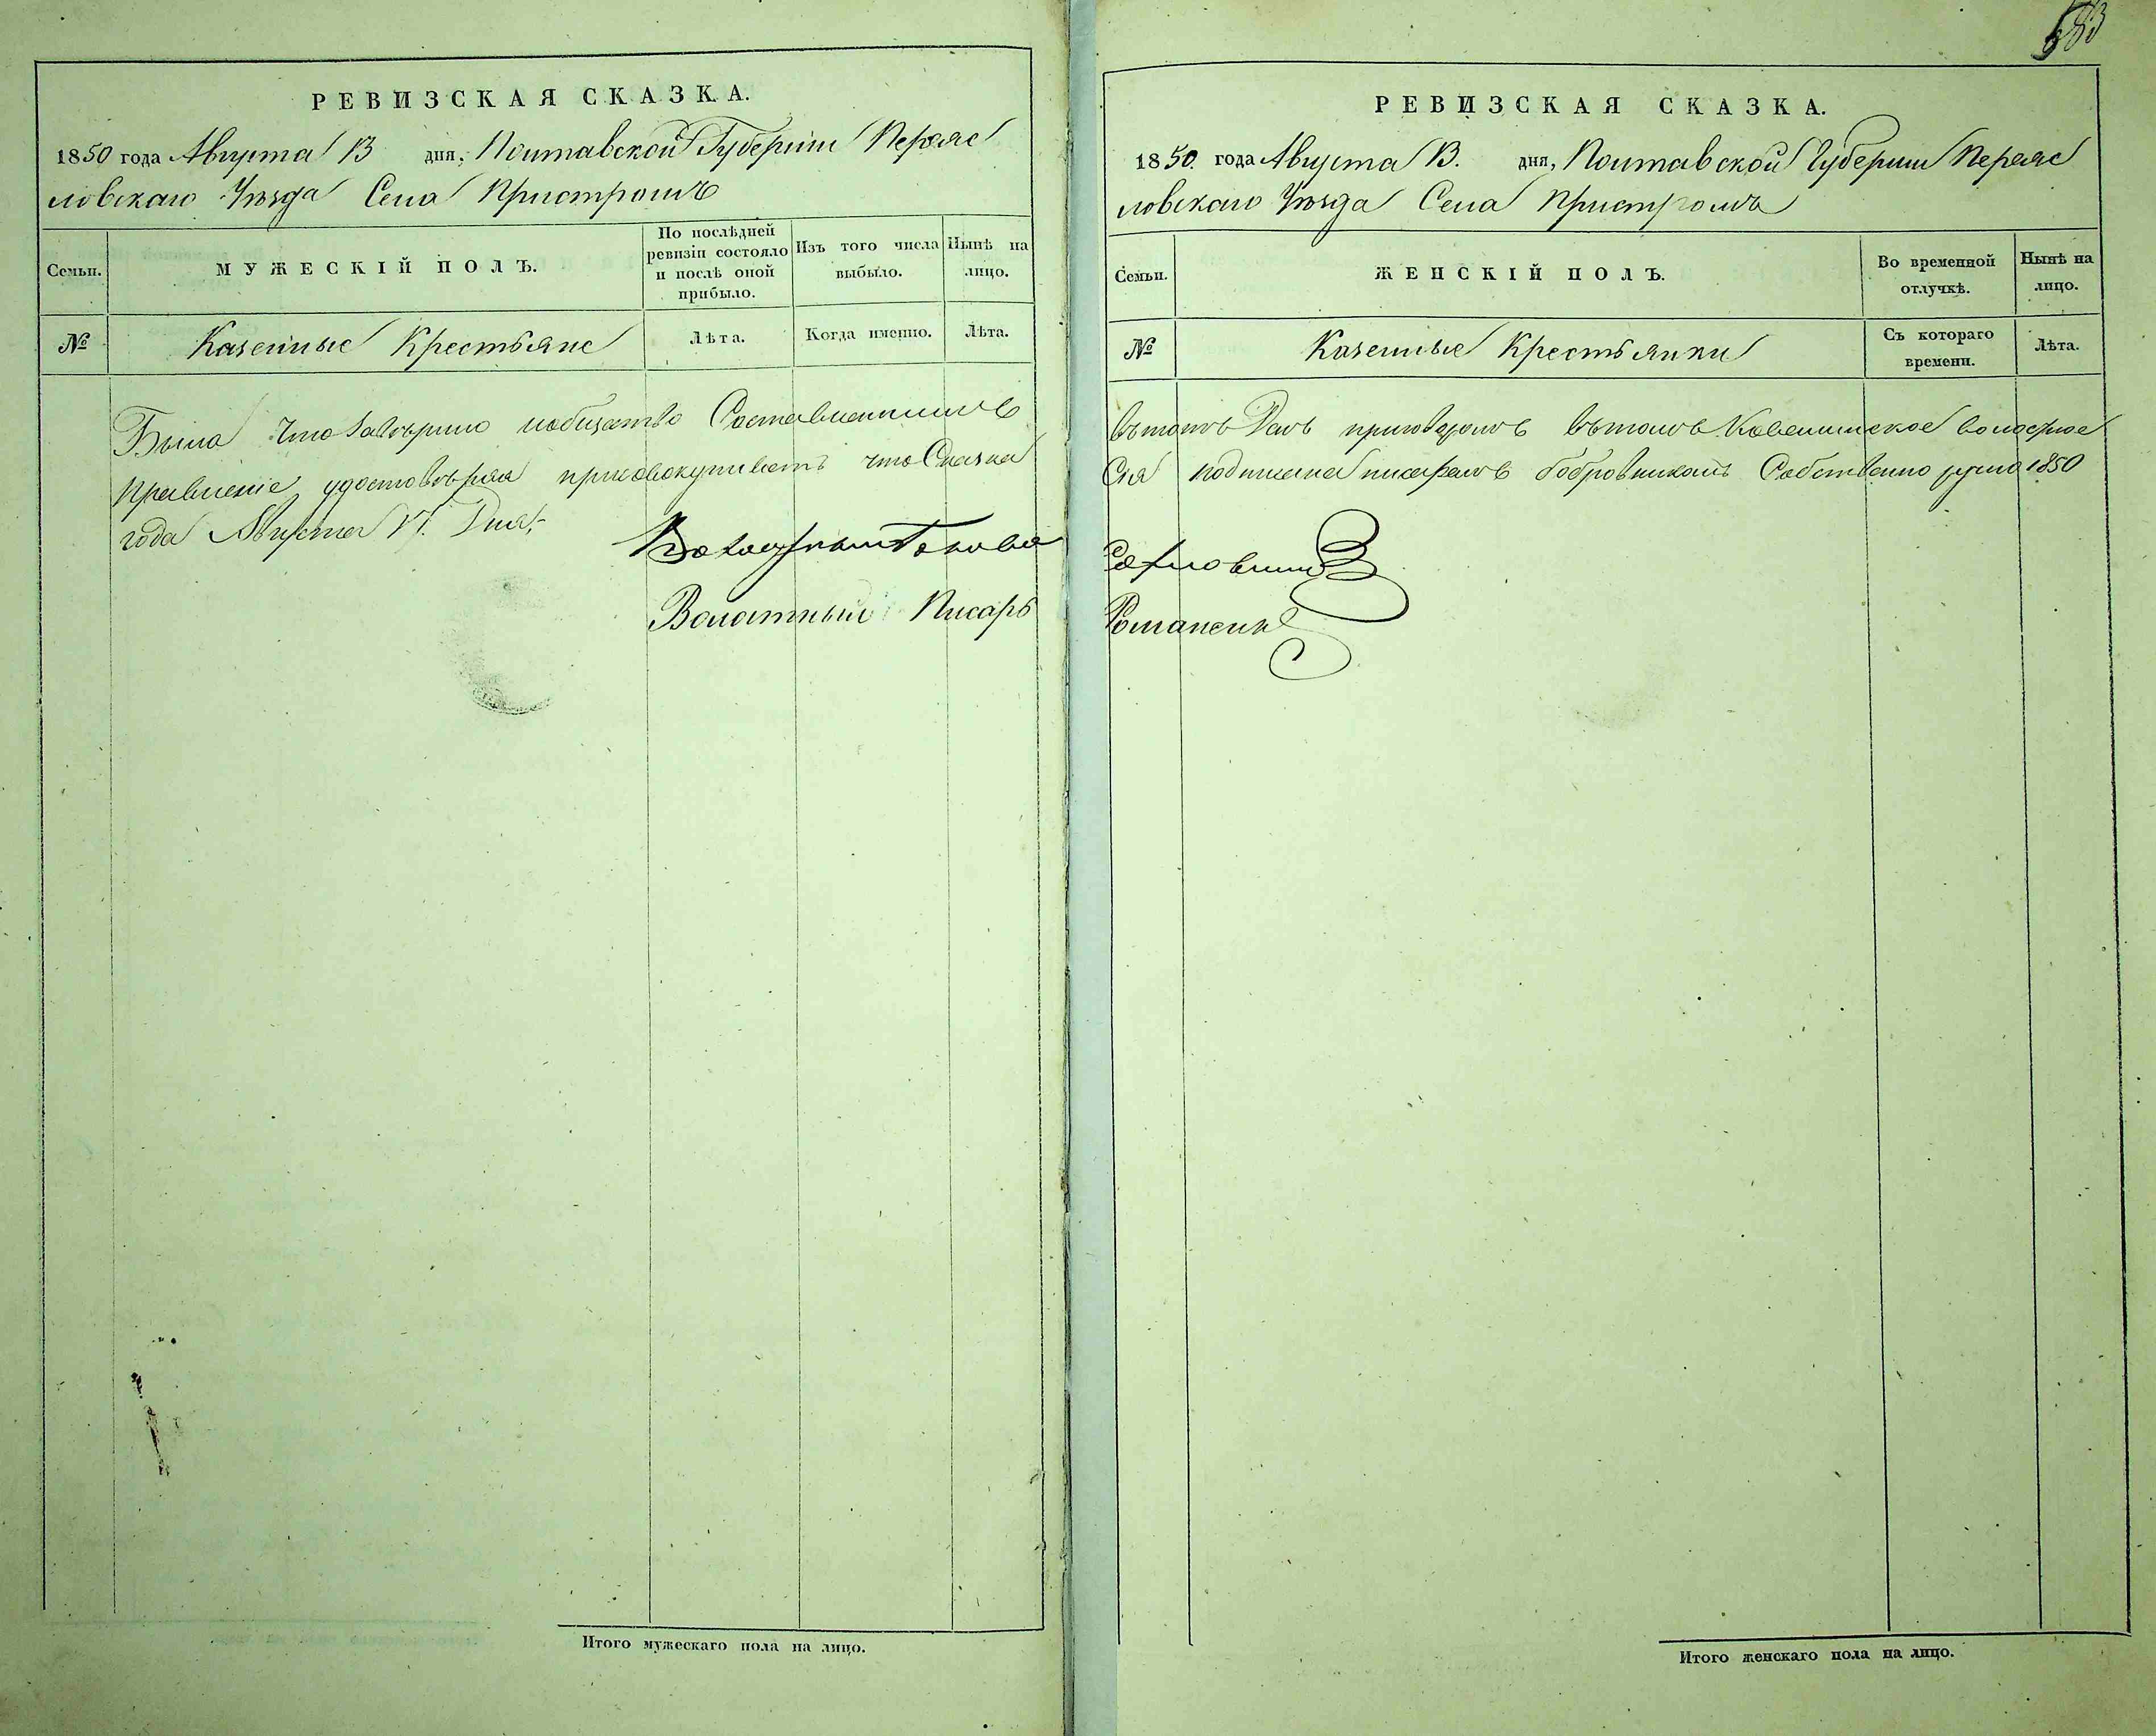 583
РЕВИЗСКАЯ СКАЗКА.
1850 года Августа 13 дня, Полтавской Губерніи Переяс
ловскаго Уѣзда Села Пристромъ
Семьи.
МУЖЕСКІЙ ПОЛЪ.
По послѣдней
ревизіи состояло
и послѣ оной
прибыло.
Изъ того числа
выбыло.
Нынѣ на
лицо.
№
Казенные Крестьяне
Лѣта.
Когда именно.
Лѣта.
Была что завѣрило Составленнымъ
Правленіе удостовѣряя присовокупляетъ что Сказка
года Августа 17. Дня,
Волостный Голова
Волостный Писарь
Итого мужескаго пола на лицо.
РЕВИЗСКАЯ СКАЗКА.
1850 года Августа 13. дня, Полтавской Губерніи Переяс
ловскаго Уѣзда Села Пристромъ
Семьи.
ЖЕНСКІЙ ПОЛЪ.
Во временной
отлучкѣ.
Нынѣ на
лицо.
№
Казенные Крестьянки
Съ котораго
времени.
Лѣта.
вътомъ приговоромъ вътомъ волостное
Сія подписана писаремъ Бобровникомъ Собственно 1850
Романенко
Итого женскаго пола на лицо.